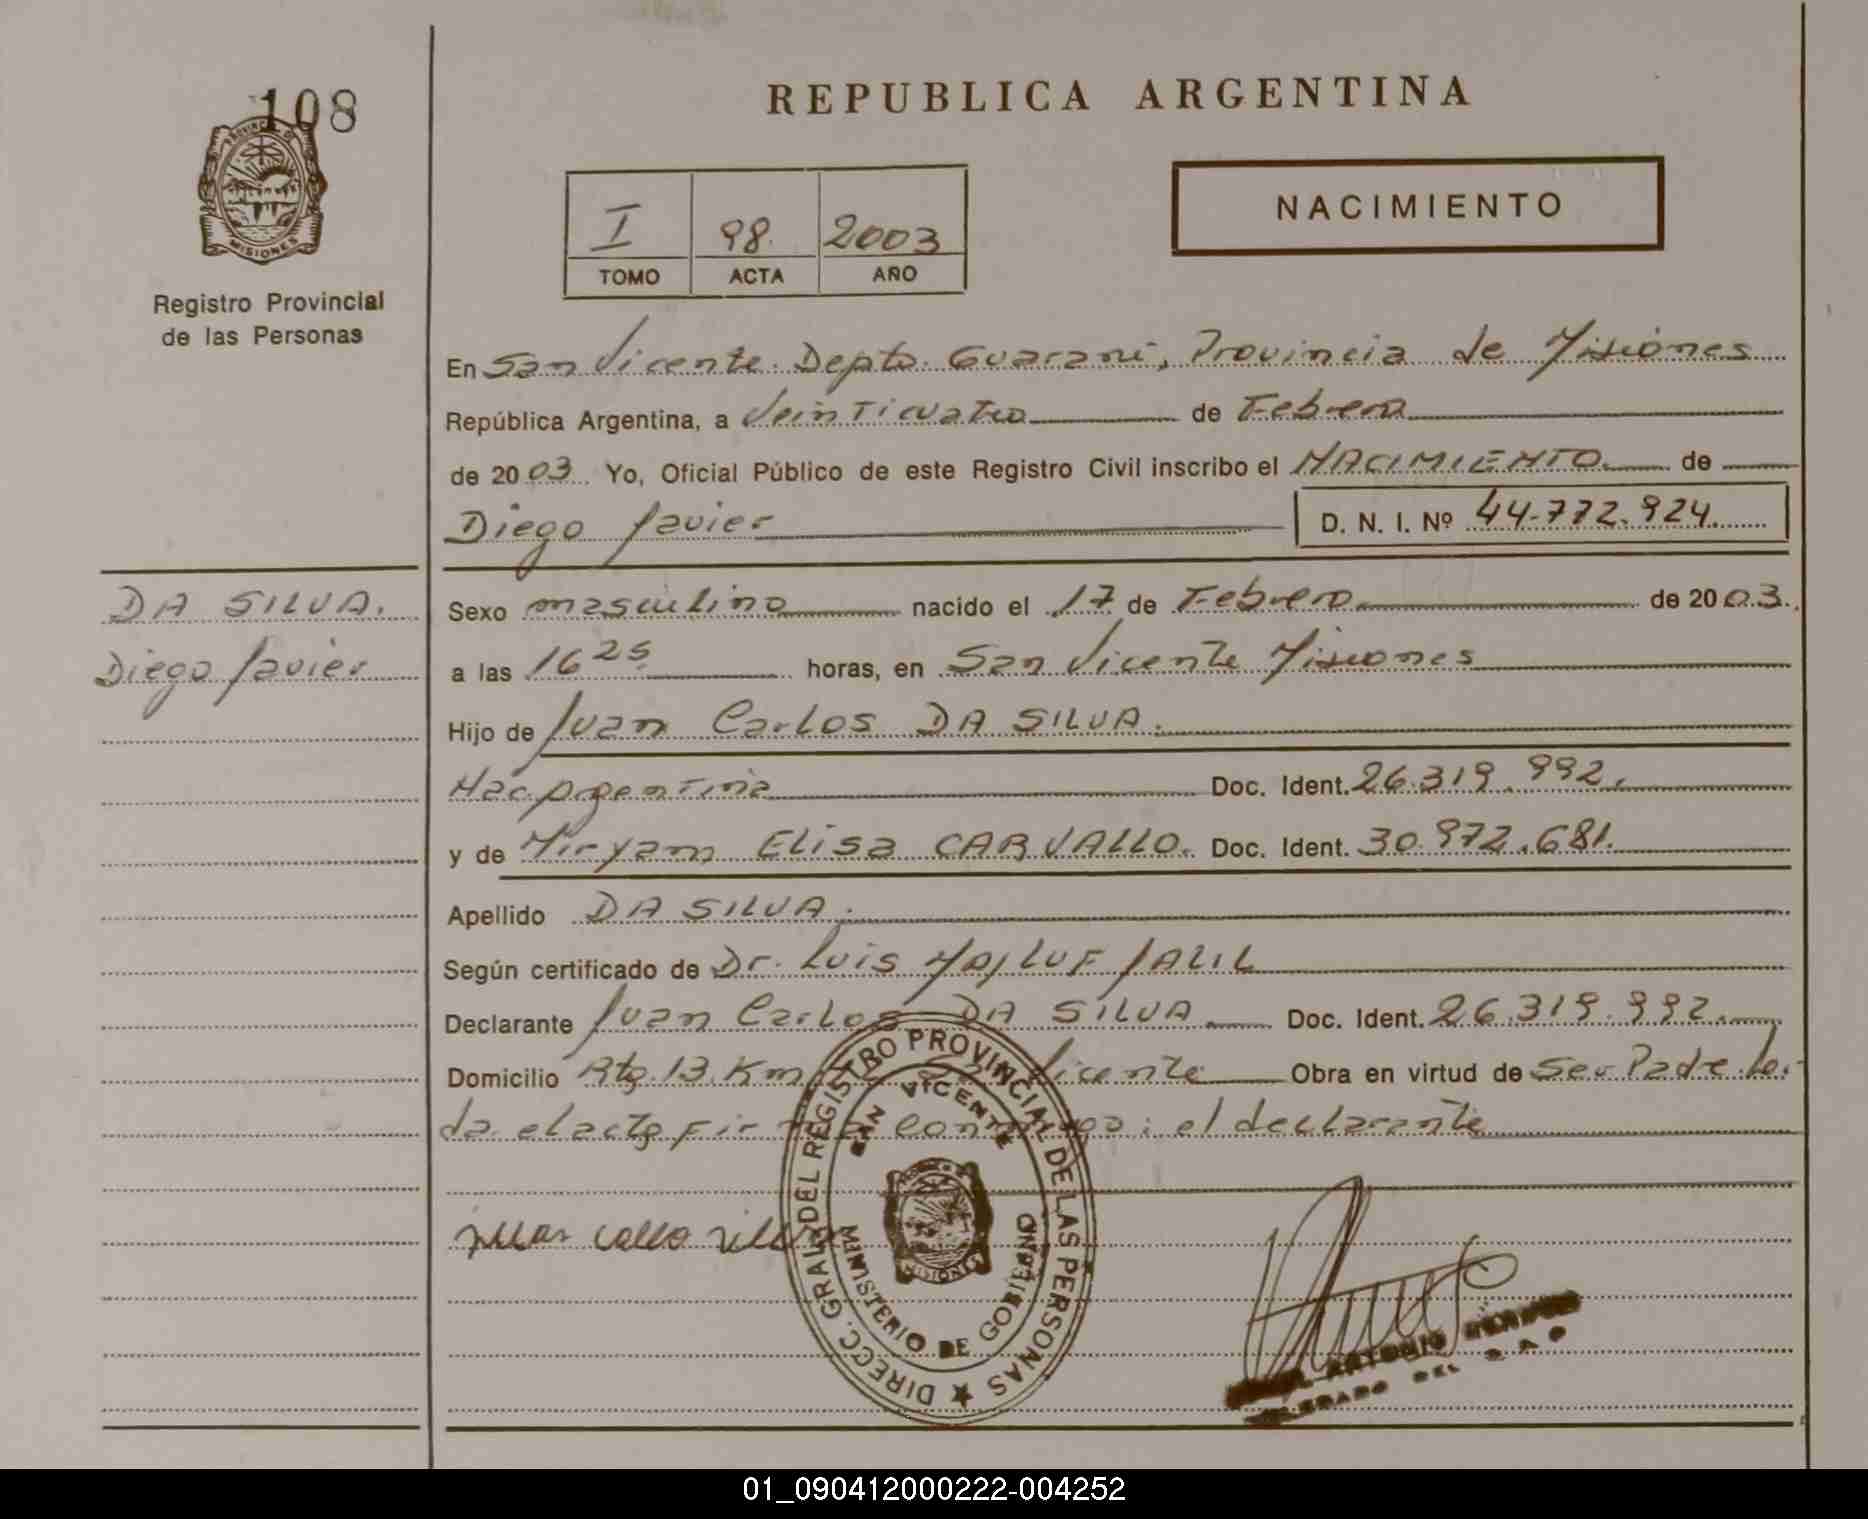 108
PROVINCIA DE
MISIONES
Registro Provincial
de las Personas
REPUBLICA ARGENTINA
I 98. 2003
TOMO ACTA AÑO
NACIMIENTO
En San Vicente. Depto. Guaraní, Provincia de Misiones
República Argentina, a Veinticuatro de Febrero
de 2003. Yo, Oficial Público de este Registro Civil inscribo el NACIMIENTO de
Diego Javier
D. N. I. Nº 44.772.924.
DA SILVA.
Diego Javier
Sexo masculino nacido el 17 de Febrero de 2003.
a las 16 25 horas, en San Vicente Misiones
Hijo de Juan Carlos DA SILVA.
Nac. Argentina Doc. Ident. 26.319.992.
y de Miryam Elisa CARVALLO. Doc. Ident. 30.972.681.
Apellido DA SILVA.
Según certificado de Dr. Luis MAJLUF JALIL
Declarante Juan Carlos DA SILVA Doc. Ident. 26.319.992.
Domicilio Rta. 13. Km Vicente Obra en virtud de Ser Padre. Le-
da el acta firma con : el declarante
DIRECC. GRAL. DEL REGISTRO PROVINCIAL DE LAS PERSONAS
SAN VICENTE
MINISTERIO DE GOBIERNO
MISIONES
ANTONIO
DEL
01_090412000222-004252